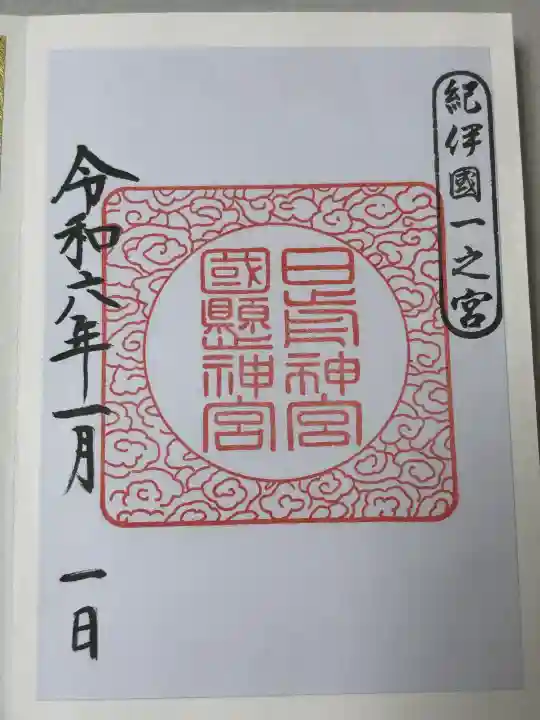 紀伊國一之宮
日前神宮
國懸神宮
令和六年一月 一日